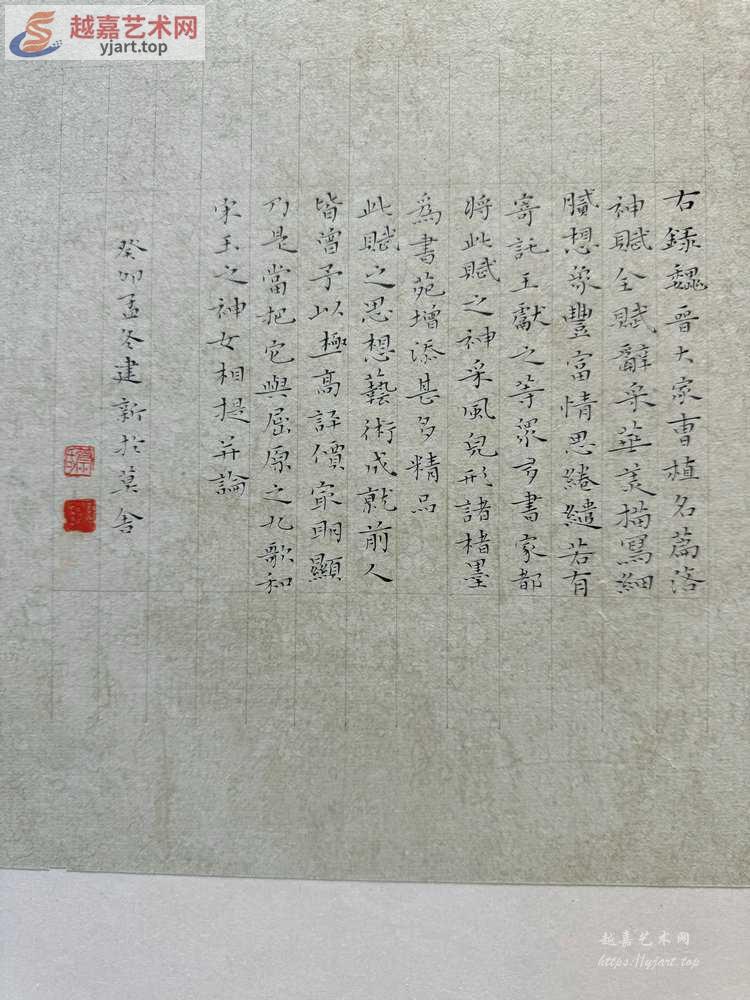 越嘉艺术网
yjart.top
右録魏晋大家曹植名篇洛
神賦全賦辭采華美描寫細
膩想象豐富情思綣繾若有
寄託王獻之等眾多書家都
將此賦之神采風皃形諸楮墨
為書苑增添甚多精品
此賦之思想藝術成就前人
皆曾予以極高評價冣明顯
乃是當把它與屈原之九歌和
宋玉之神女相提并論
癸卯孟冬建新於莫舍
越嘉艺术网
https://yjart.top